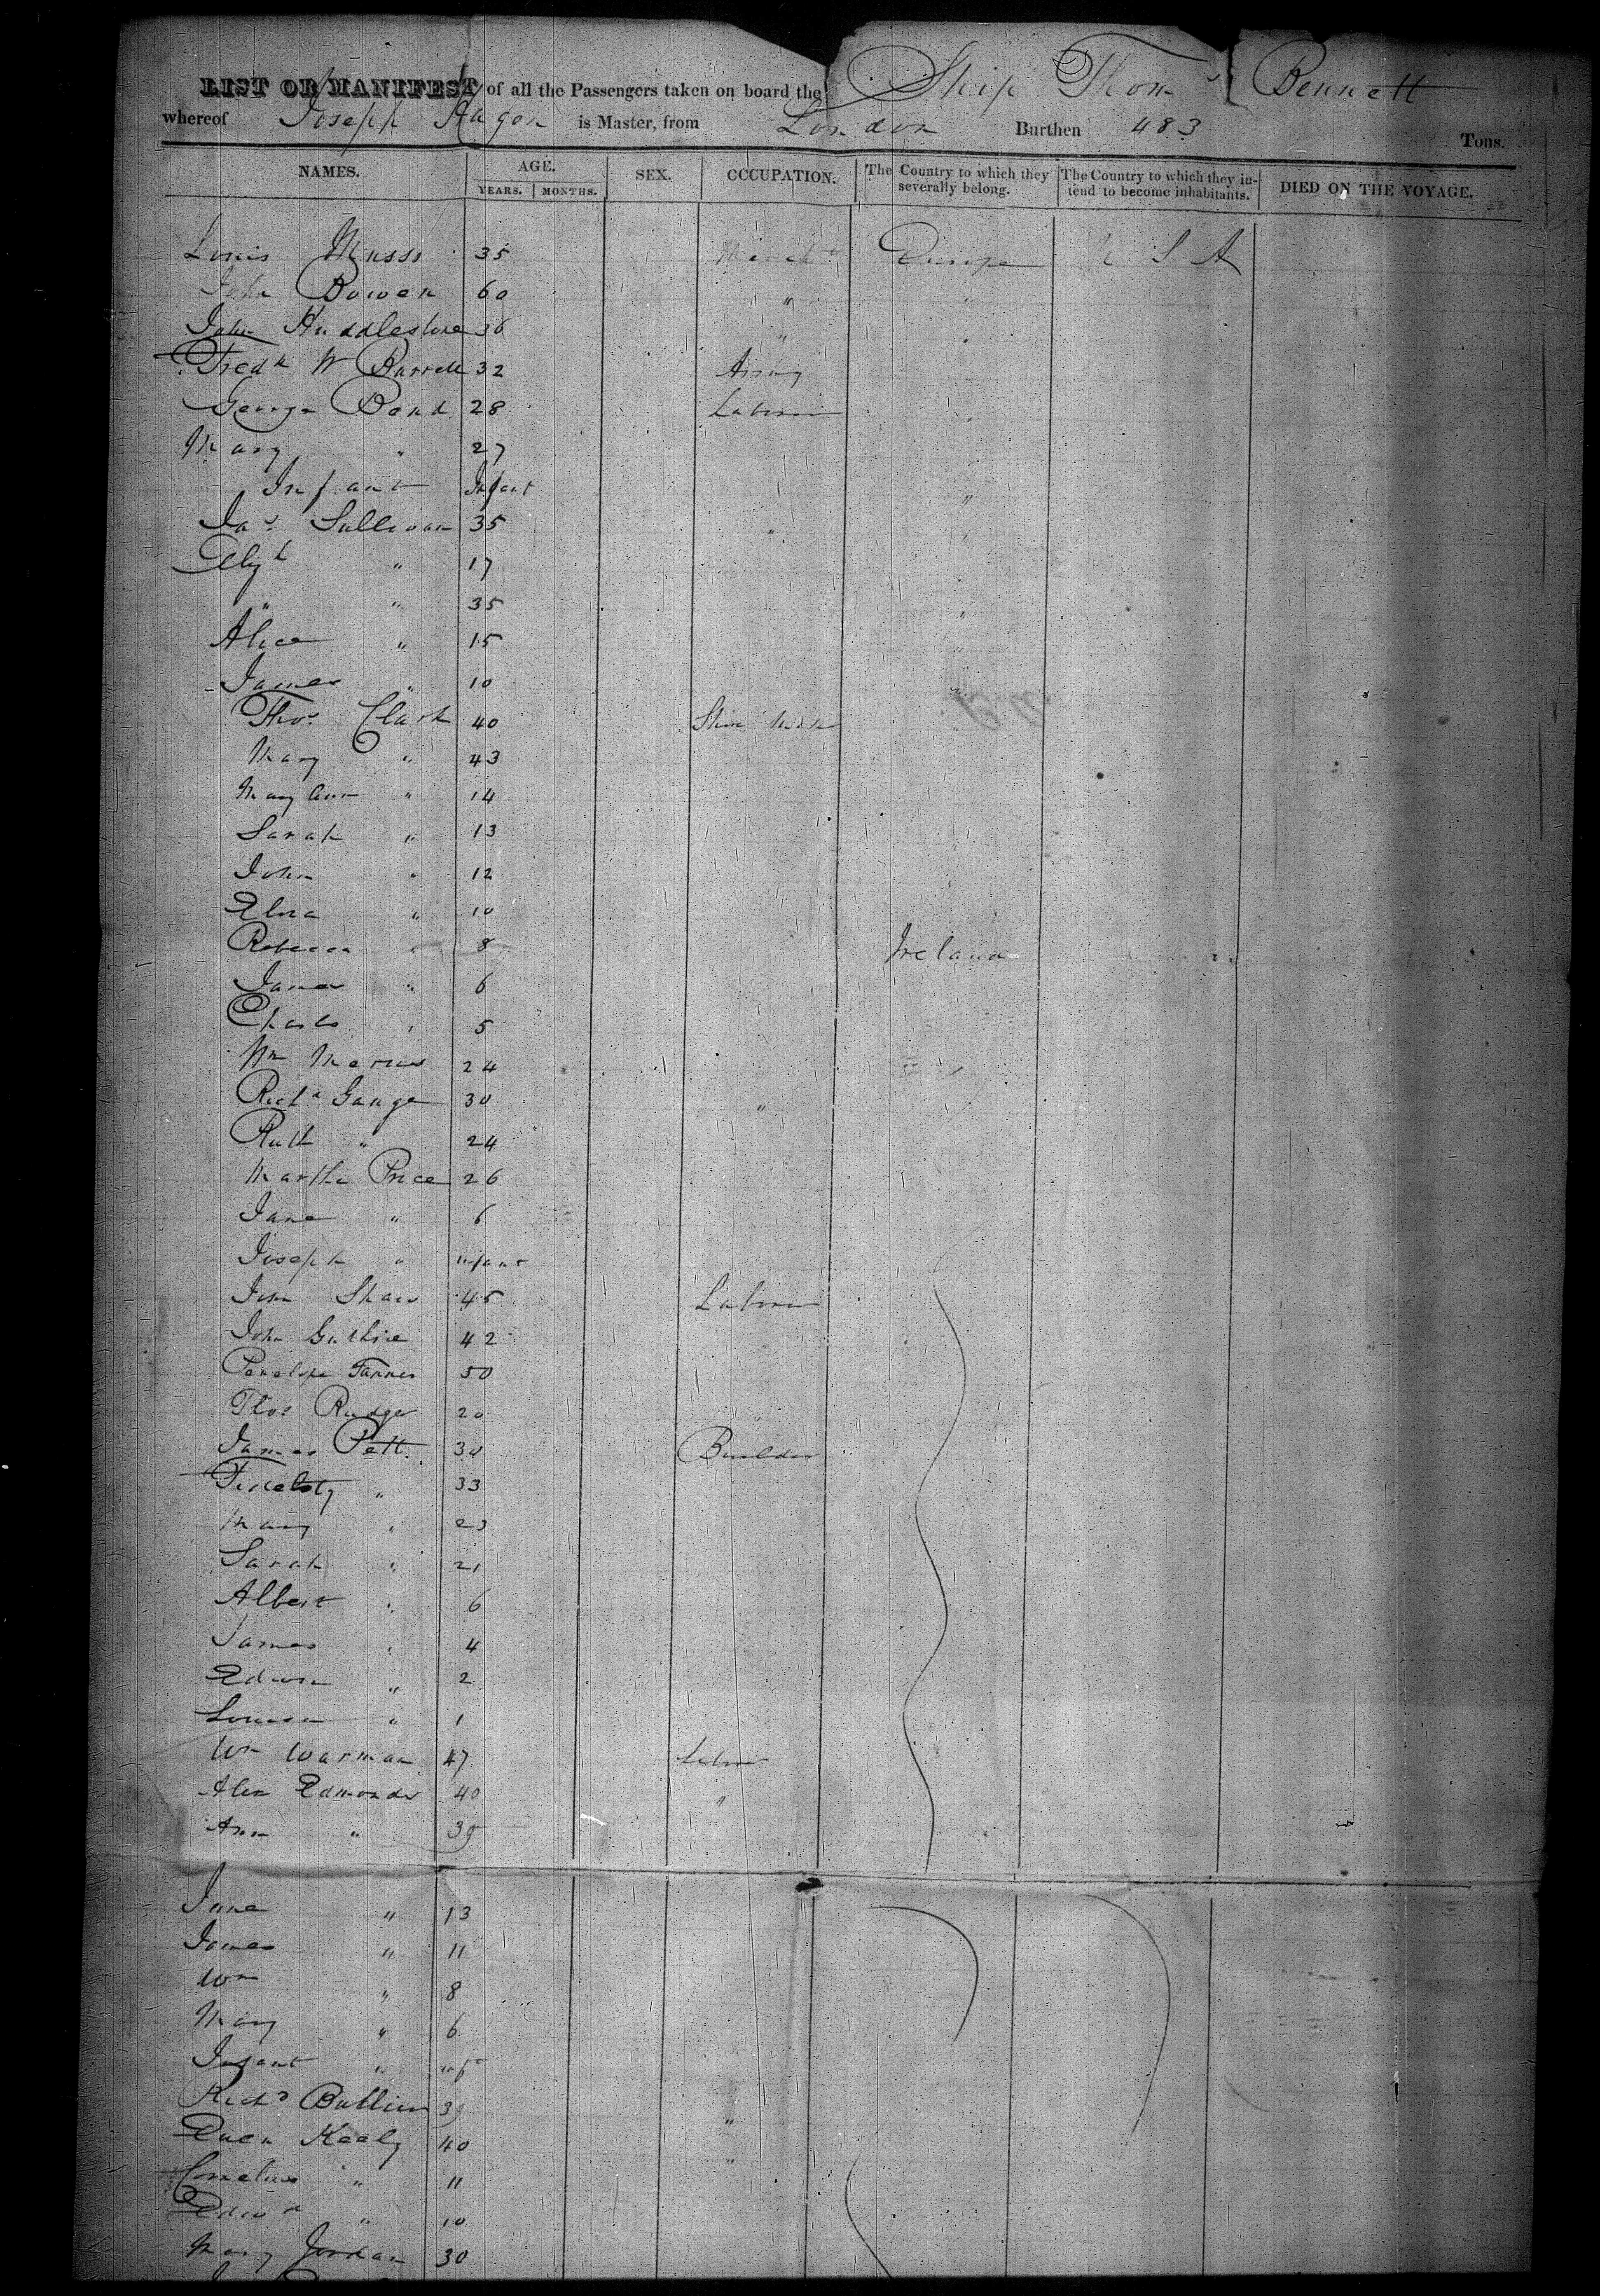 LIST OR MANIFEST of all the Passengers taken on board the Ship Thoms Bennett
whereof Joseph Hagon is Master, from London Burthen 483 Tons.
NAMES. AGE. YEARS. MONTHS. SEX. OCCUPATION. The Country to which they severally belong. The Country to which they intend to become inhabitants. DIED ON THE VOYAGE.
Louis 35 Europe U S A
John Bowen 60 " "
John Huddlestone 36 " "
Fredk W Barrell 32 Army
George Bond 28 Labourer "
Mary " 27
Infant Infant "
Jas Sullivan 35 " "
Elizh " 17 "
" " 35 "
Alice " 15 "
James " 10 "
Thos Clark 40 Shoe Maker
Mary " 43
Mary Ann " 14
Sarah " 13
John " 12
Eliza " 10
Rebecca " 8 Ireland
James " 6
Charles " 5
Wm 24
Richd Gange 30 "
Ruth " 24
Martha Price 26
Jane " 6
Joseph " infant
John Shaw 45 Labourer
John Guthrie 42
Penelope Tanner 50
Thos Rudge 20 "
James Pett 30 Builder
" 33
Mary " 23
Sarah " 21
Albert " 6
James " 4
Edwin " 2
Louisa " 1
Wm Warman 47 Labour
Alex Edmonds 40 "
Ann " 39
Jane " 13
James " 11
Wm " 8
Mary " 6
Infant " inft
Richd 39 "
Owen Kealy 40 "
Cornelius " 11
Edwd " 10
Mary Jordan 30